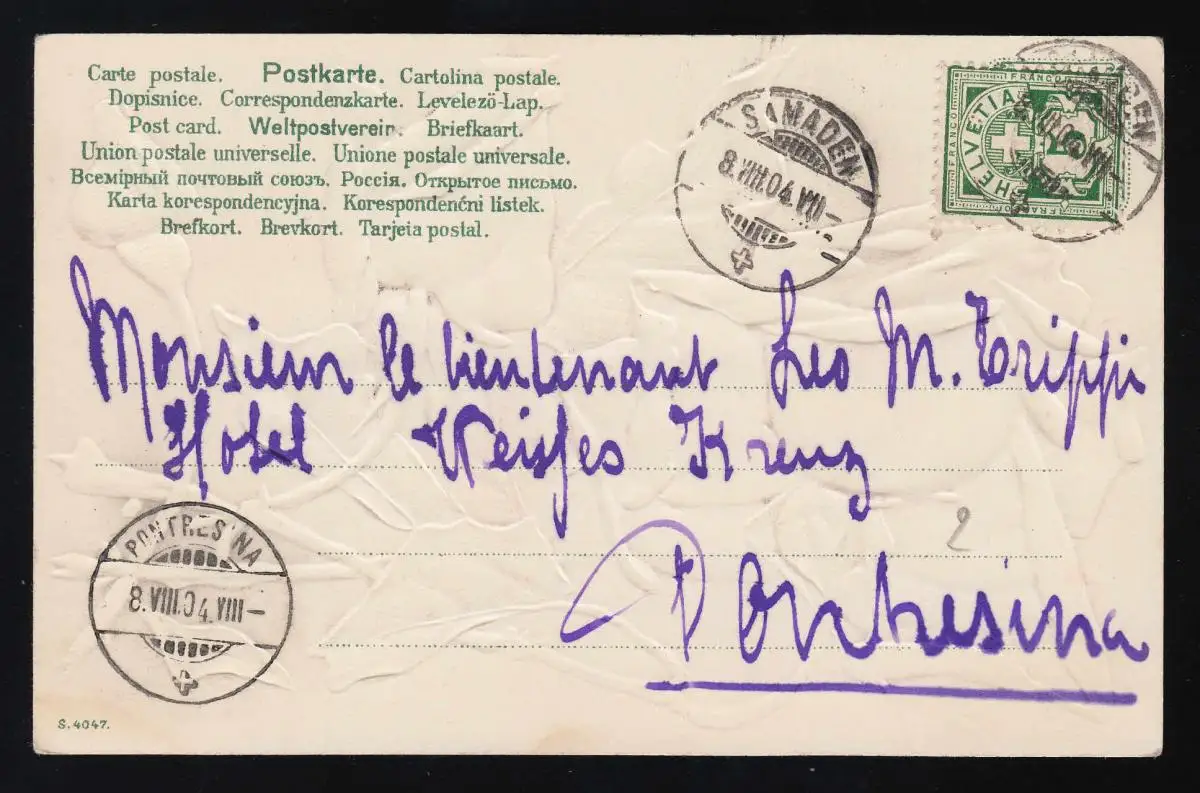 Carte postale. Postkarte. Cartolina postale.
Dopisnice. Correspondenzkarte. Levelezö-Lap.
Post card. Weltpostverein. Briefkaart.
Union postale universelle. Unione postale universale.
Всемірный почтовый союзъ. Россія. Открытое письмо.
Karta korespondencyjna. Korespondenćni listek.
Brefkort. Brevkort. Tarjeta postal.
SAMADEN
8.VIII.04.VIII–
FRANCO
HELVETIA
FRANCO
5
FRANCO
Monsieur le lieutenant Leo M. Trippi
Hotel Weisses Kreuz
2
Pontresina
PONTRESINA
8.VIII.04.VIII–
S. 4047.